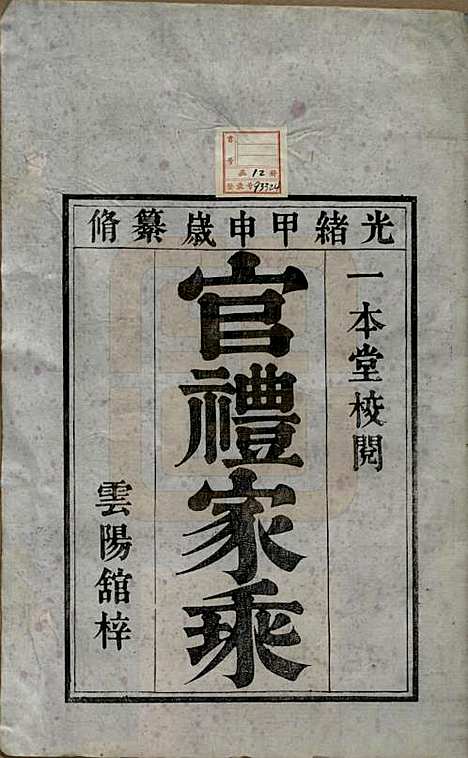 光緒甲申歲纂脩
一本堂校閱
官禮家乘
雲陽舘梓
書号
函12册
登录号93324